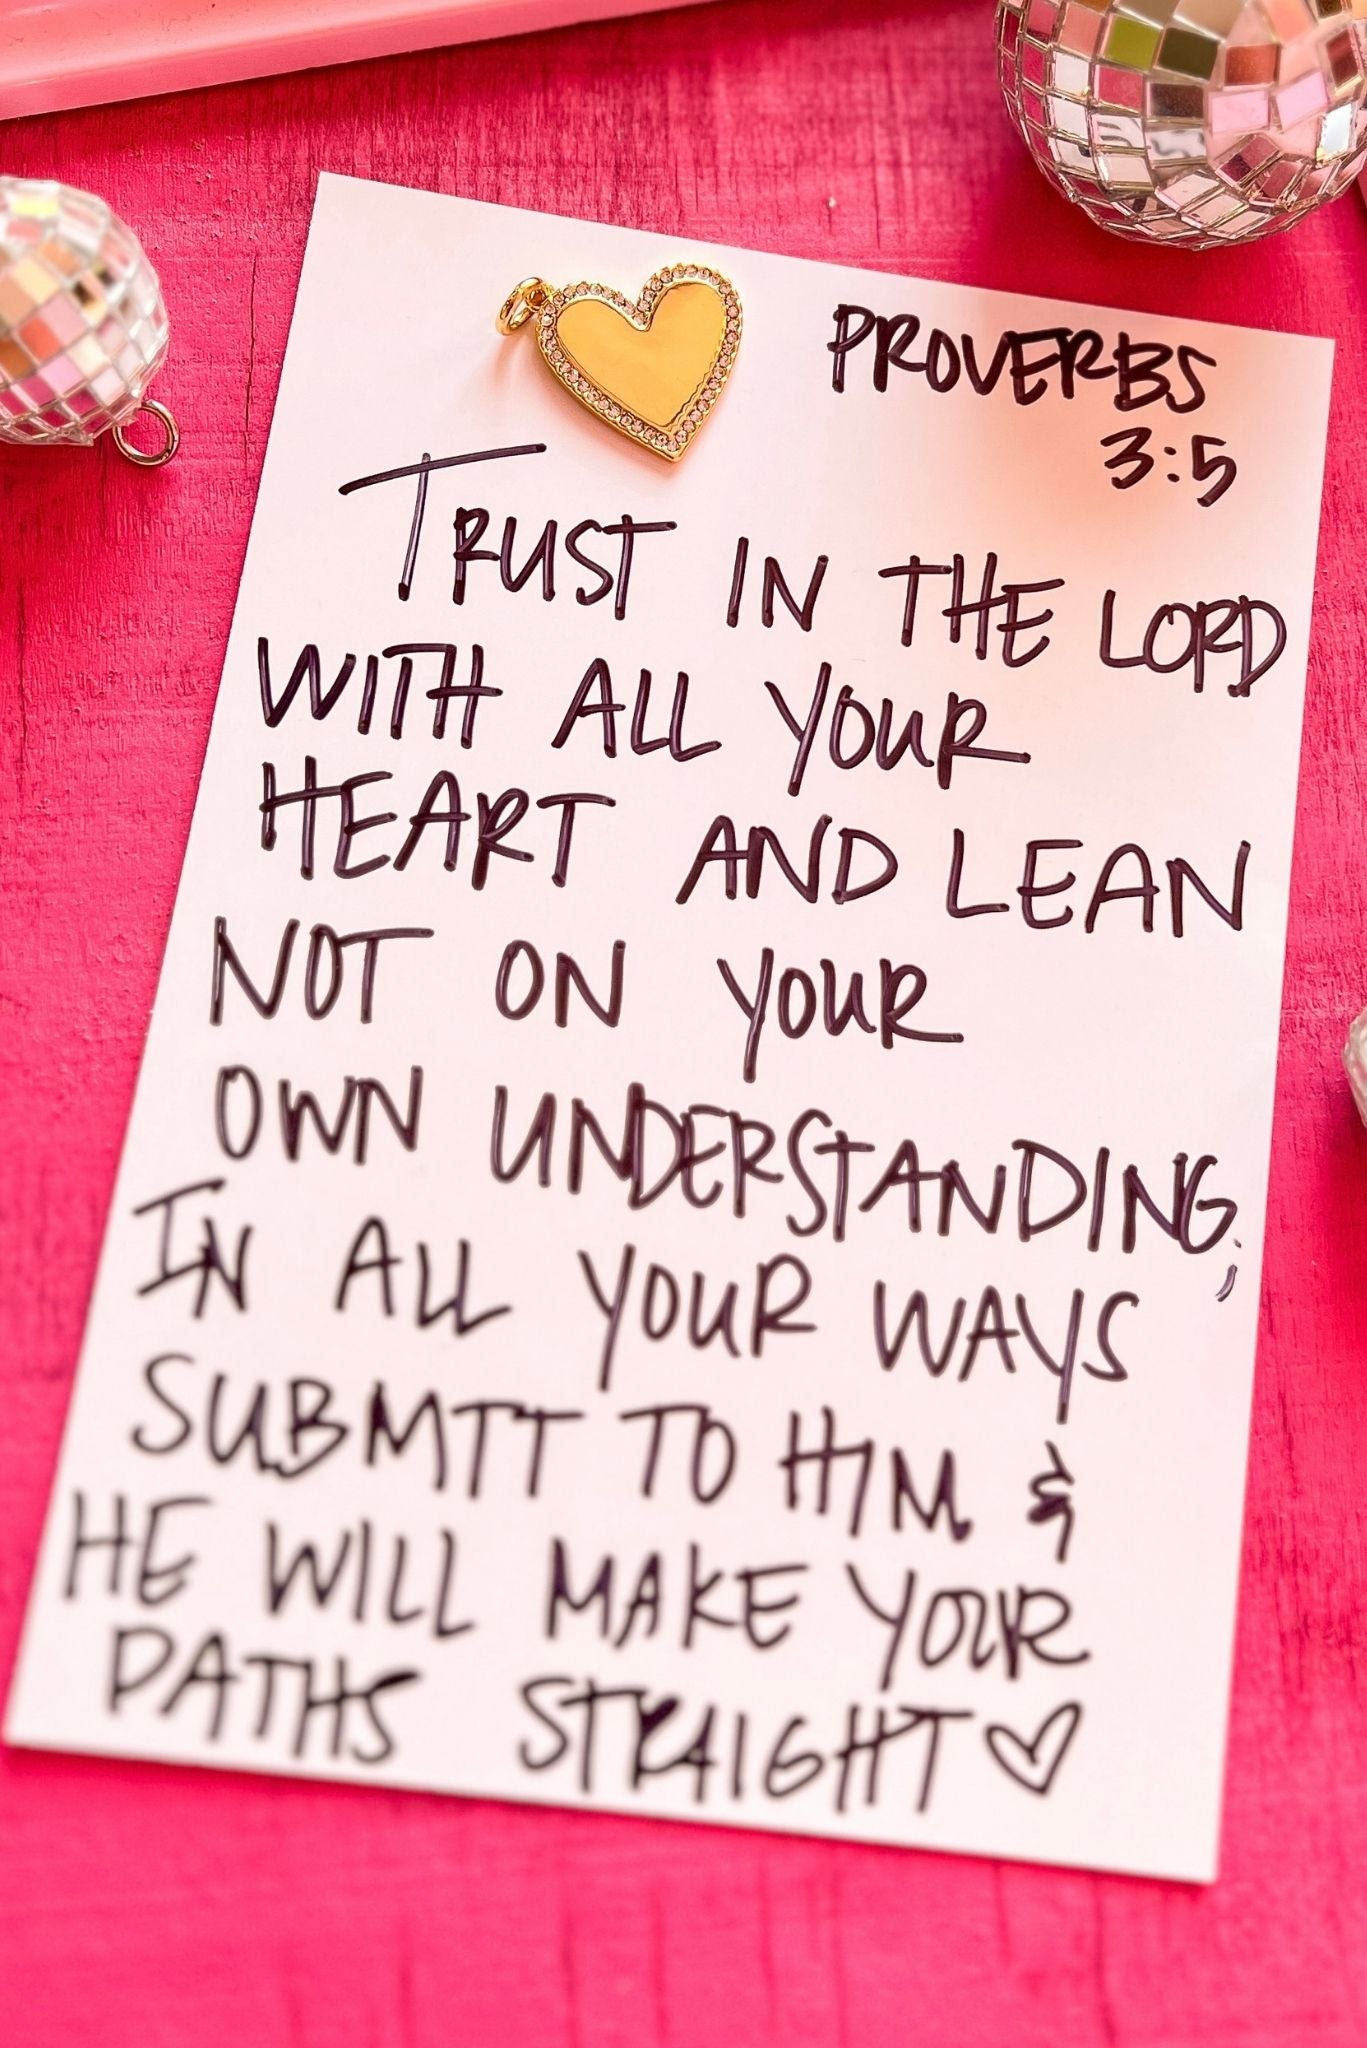 PROVERBS
3:5
TRUST IN THE LORD
WITH ALL YOUR
HEART AND LEAN
NOT ON YOUR
OWN UNDERSTANDING;
IN ALL YOUR WAYS
SUBMIT TO HIM &
HE WILL MAKE YOUR
PATHS STRAIGHT♡